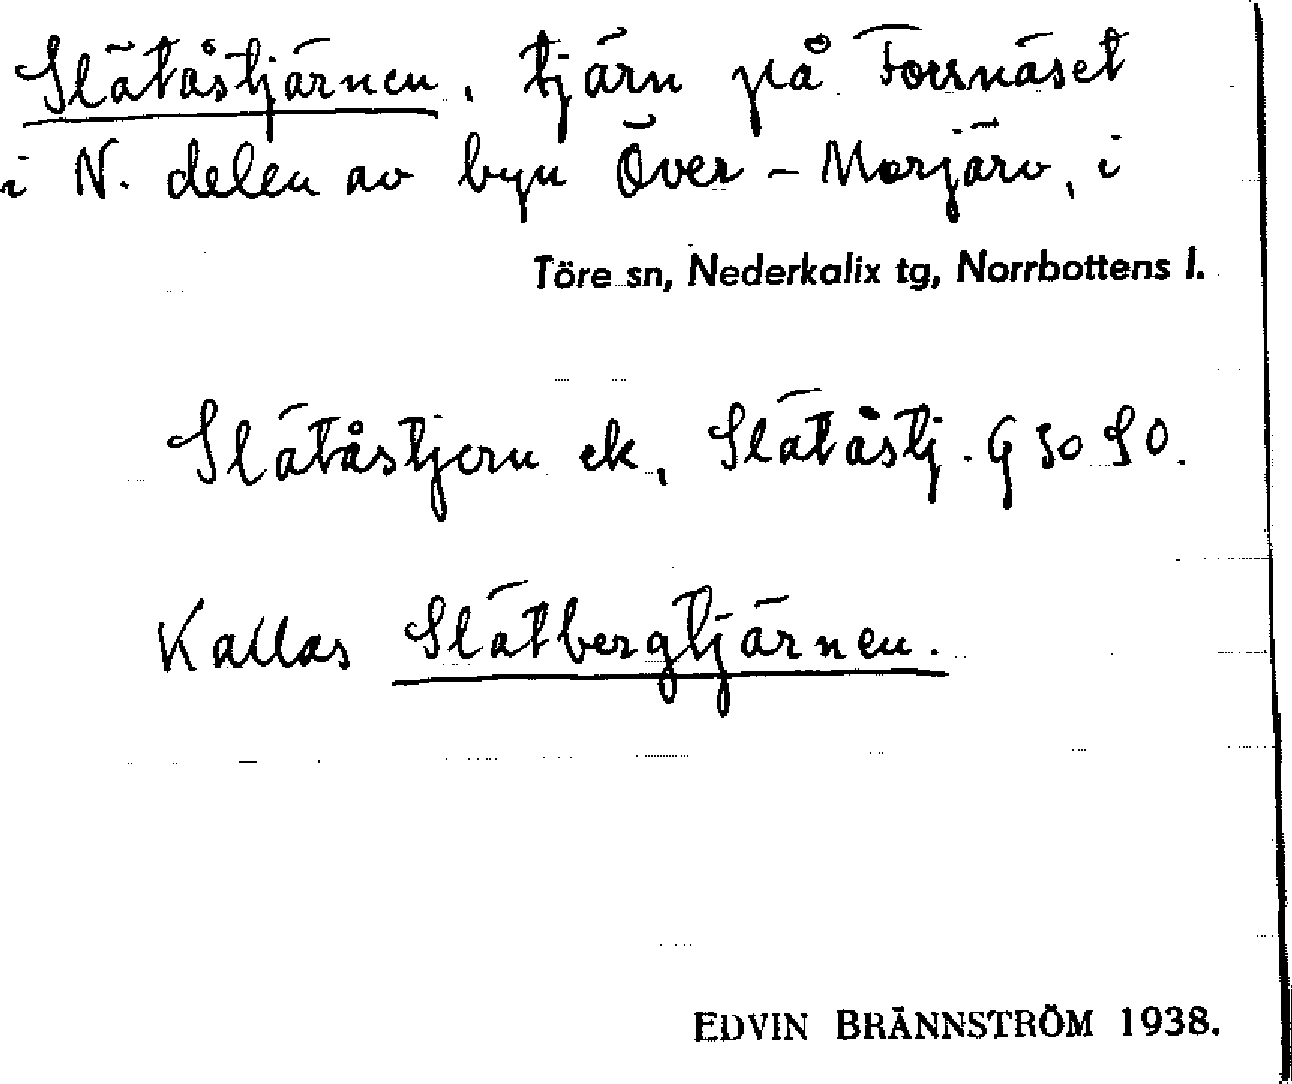 Slätåstjärnen, tjärn på Forsnäset
i N. delen av byn Över-Morjärv, i
Töre sn, Nederkalix tg, Norrbottens l.
Slätåstjern ek, Slätåstj. G 30 SO.
Kallas Slätbergtjärnen.
EDVIN BRÄNNSTRÖM 1938.